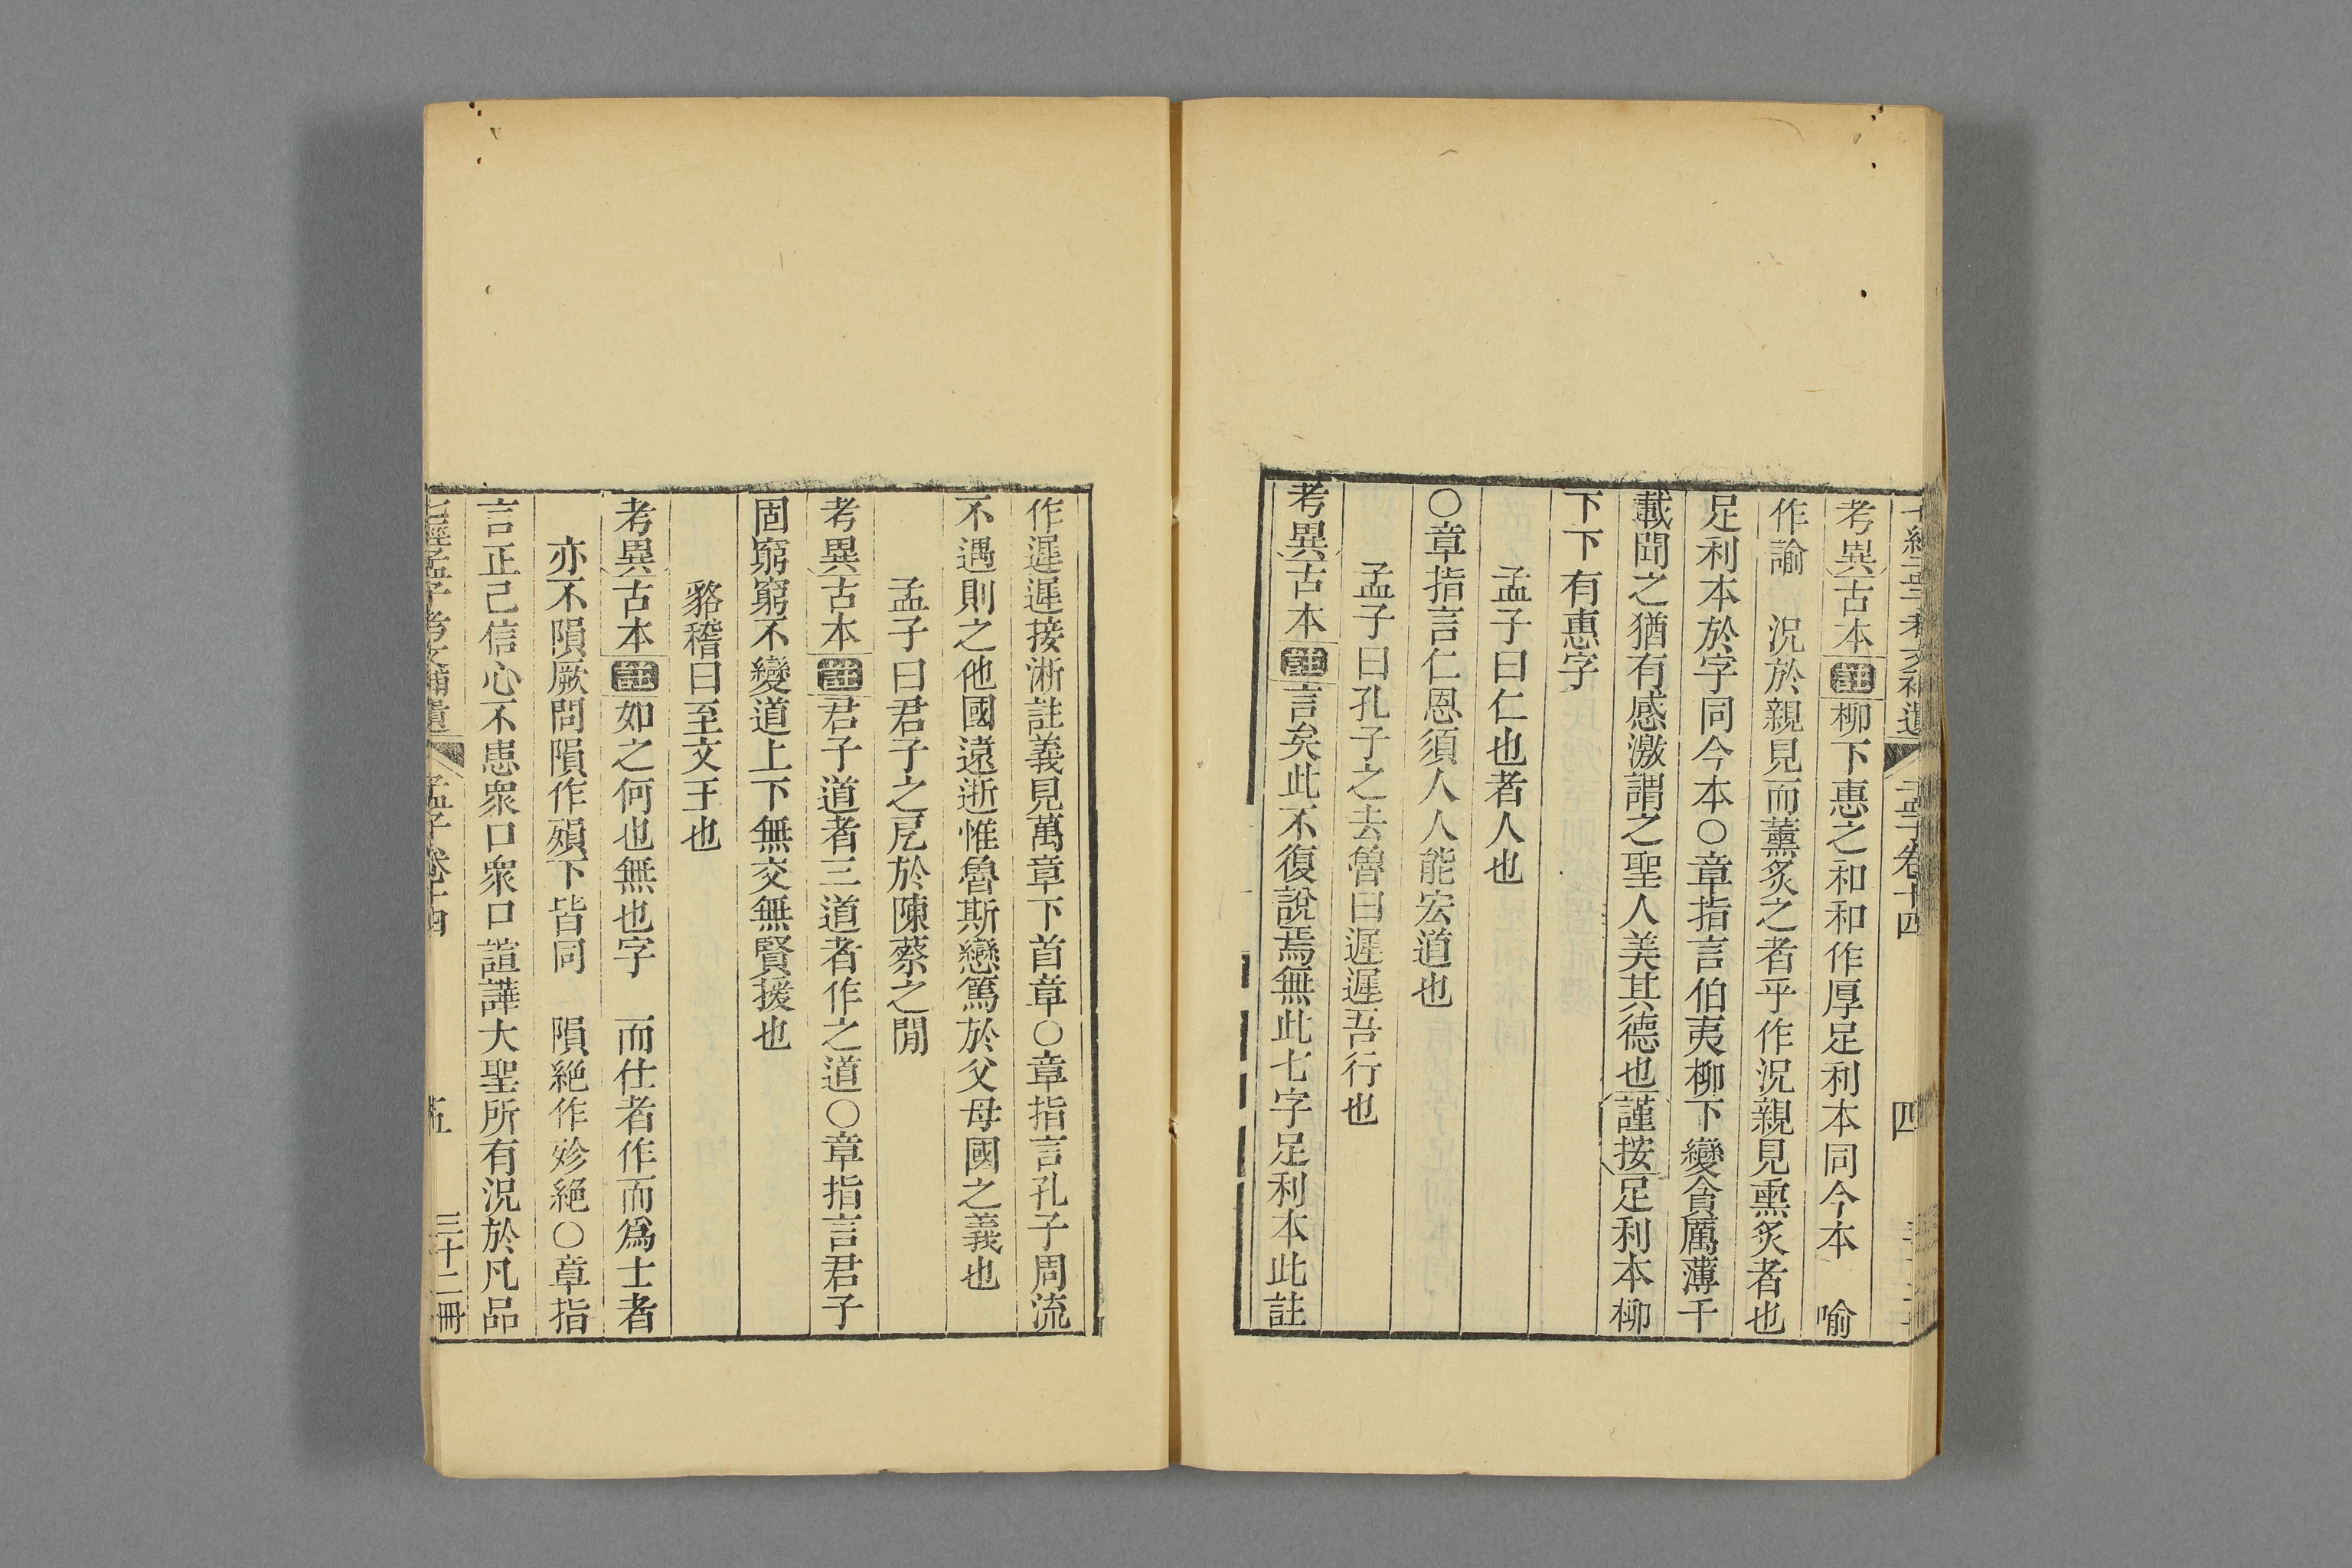 孟子卷十四
四
考異古本註柳下惠之和和作厚足利本同今本　喻
作諭　況於親見而薰炙之者乎作況親見熏炙者也
足利本於字同今本○章指言伯夷柳下變貪厲薄千
載聞之猶有感激謂之聖人美其德也謹按足利本柳
下下有惠字
孟子曰仁也者人也
○章指言仁恩須人人能宏道也
孟子曰孔子之去魯曰遲遲吾行也
考異古本註言矣此不復說焉無此七字足利本此註
作遲遲接淅註義見萬章下首章○章指言孔子周流
不遇則之他國遠逝惟魯斯戀篤於父母國之義也
孟子曰君子之戹於陳蔡之閒
考異古本註君子道者三道者作之道○章指言君子
固窮窮不變道上下無交無賢援也
貉稽曰至文王也
考異古本註如之何也無也字　而仕者作而爲士者
亦不隕厥問隕作殞下皆同　隕絕作殄絕○章指
言正己信心不患衆口衆口諠譁大聖所有況於凡品
七經孟子考文補遺　孟子卷十四　五　三十二冊